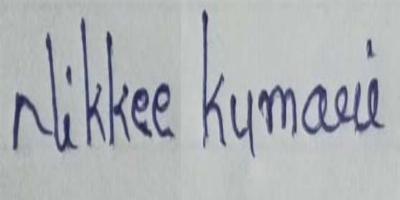 Nikkee kumari